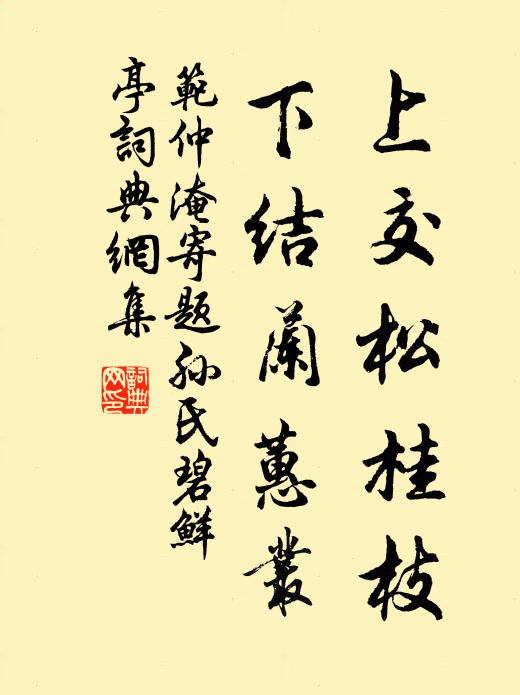 上交松桂枝
下结蘭蕙叢
範仲淹寄题孙氏碧鮮
亭詞典網集
詞典
网印